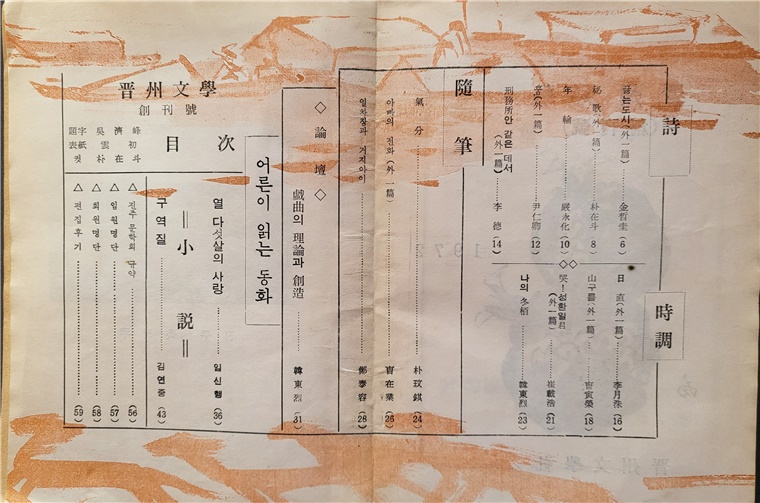 詩
글는도시(外一篇) 金晢圭 (6)
秘歌(外一篇) 朴在斗 8
年輪 嚴永化 (10)
窓(外一篇) 尹仁卿 (12)
刑務所안 같은 데서(外一篇) 李德 (14)
時調
日直(外一篇) 李月洙 (16)
山구름(外一篇) 曺寅榮 (18)
哭!성환일君(外一篇) 崔載浩 (21)
나의 冬栢 韓東烈 (23)
隨筆
氣分 朴玟鎭 (24)
아빠의 전화(外一篇) 曺在業 (26)
열차장과 거지아이 鄭泰容 (28)
◇論壇◇
戱曲의 理論과 創造 韓東烈 (31)
晋州文學
創刊號
目次
題字 吳濟峰
表紙 雲初
컷 朴在斗
어른이 읽는 동화
열다섯살의 사랑 임신행 36
=小說=
구역질 김연중 (43)
△진주문학회 규약 (56)
△임원명단 (57)
△회원명단 (58)
△편집후기 (59)
1972
晋州文學會